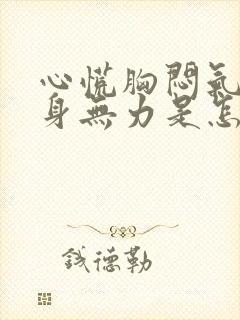 心慌胸悶氣
身無力是怎
錢德勒